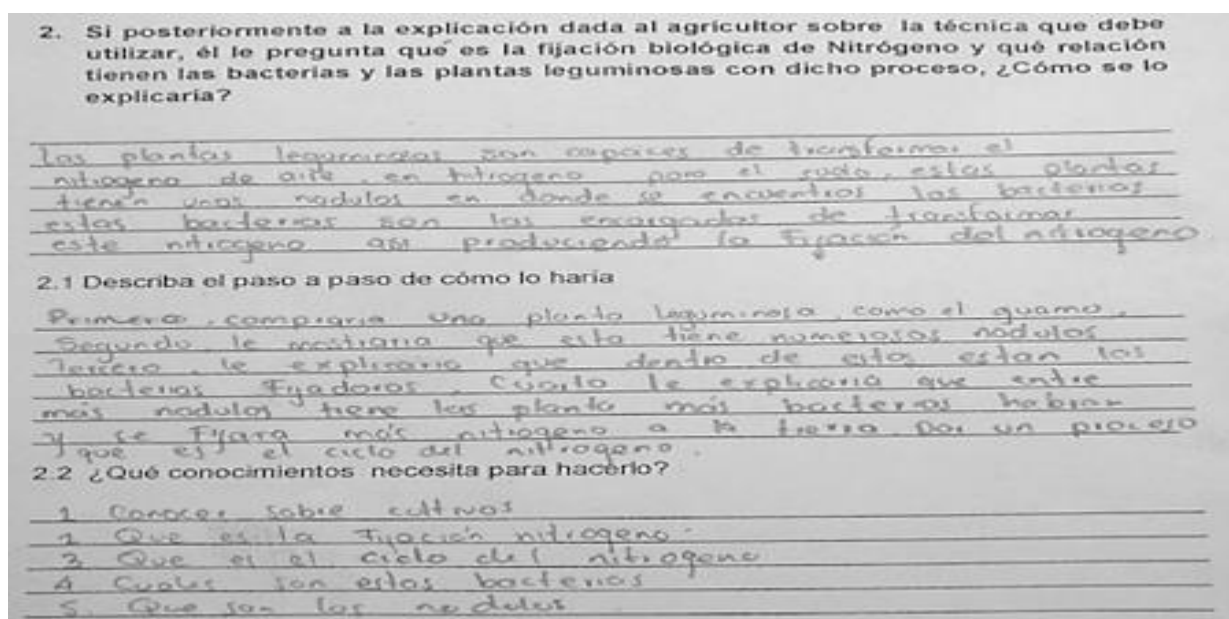 2. Si posteriormente a la explicación dada al agricultor sobre la técnica que debe
utilizar, él le pregunta que es la fijación biológica de Nitrógeno y qué relación
tienen las bacterias y las plantas leguminosas con dicho proceso, ¿Cómo se lo
explicaría?
Las plantas leguminosas son capaces de transformar el
nitrogeno de aire, en nitrogeno para el suelo, estas plantas
tienen unos nodulos en donde se encuentros las bacterias
estas bacterias son las encargadas de transformar
este nitrogeno asi produciendo la Fijación del nitrogeno
2.1 Describa el paso a paso de cómo lo haría
Primero, compraria una planta leguminosa, como el guamo,
Segundo, le mostraria que esta tiene numerosos nodulos
Tercero, le explicaria que dentro de estos estan las
bacterias Fijadoras, Cuarto le explicaria que entre
mas nodulos tiene las planta más bacterias habran
y se Fijara más nitrogeno a la tierra por un proceso
que es el ciclo del nitrogeno.
2.2 ¿Qué conocimientos necesita para hacerlo?
1 Conocer sobre cultivos
2 Que es la Fijación nitrogeno.
3 Que es el ciclo del nitrogeno
4 Cuales son estas bacterias
5. Que son los nodulos